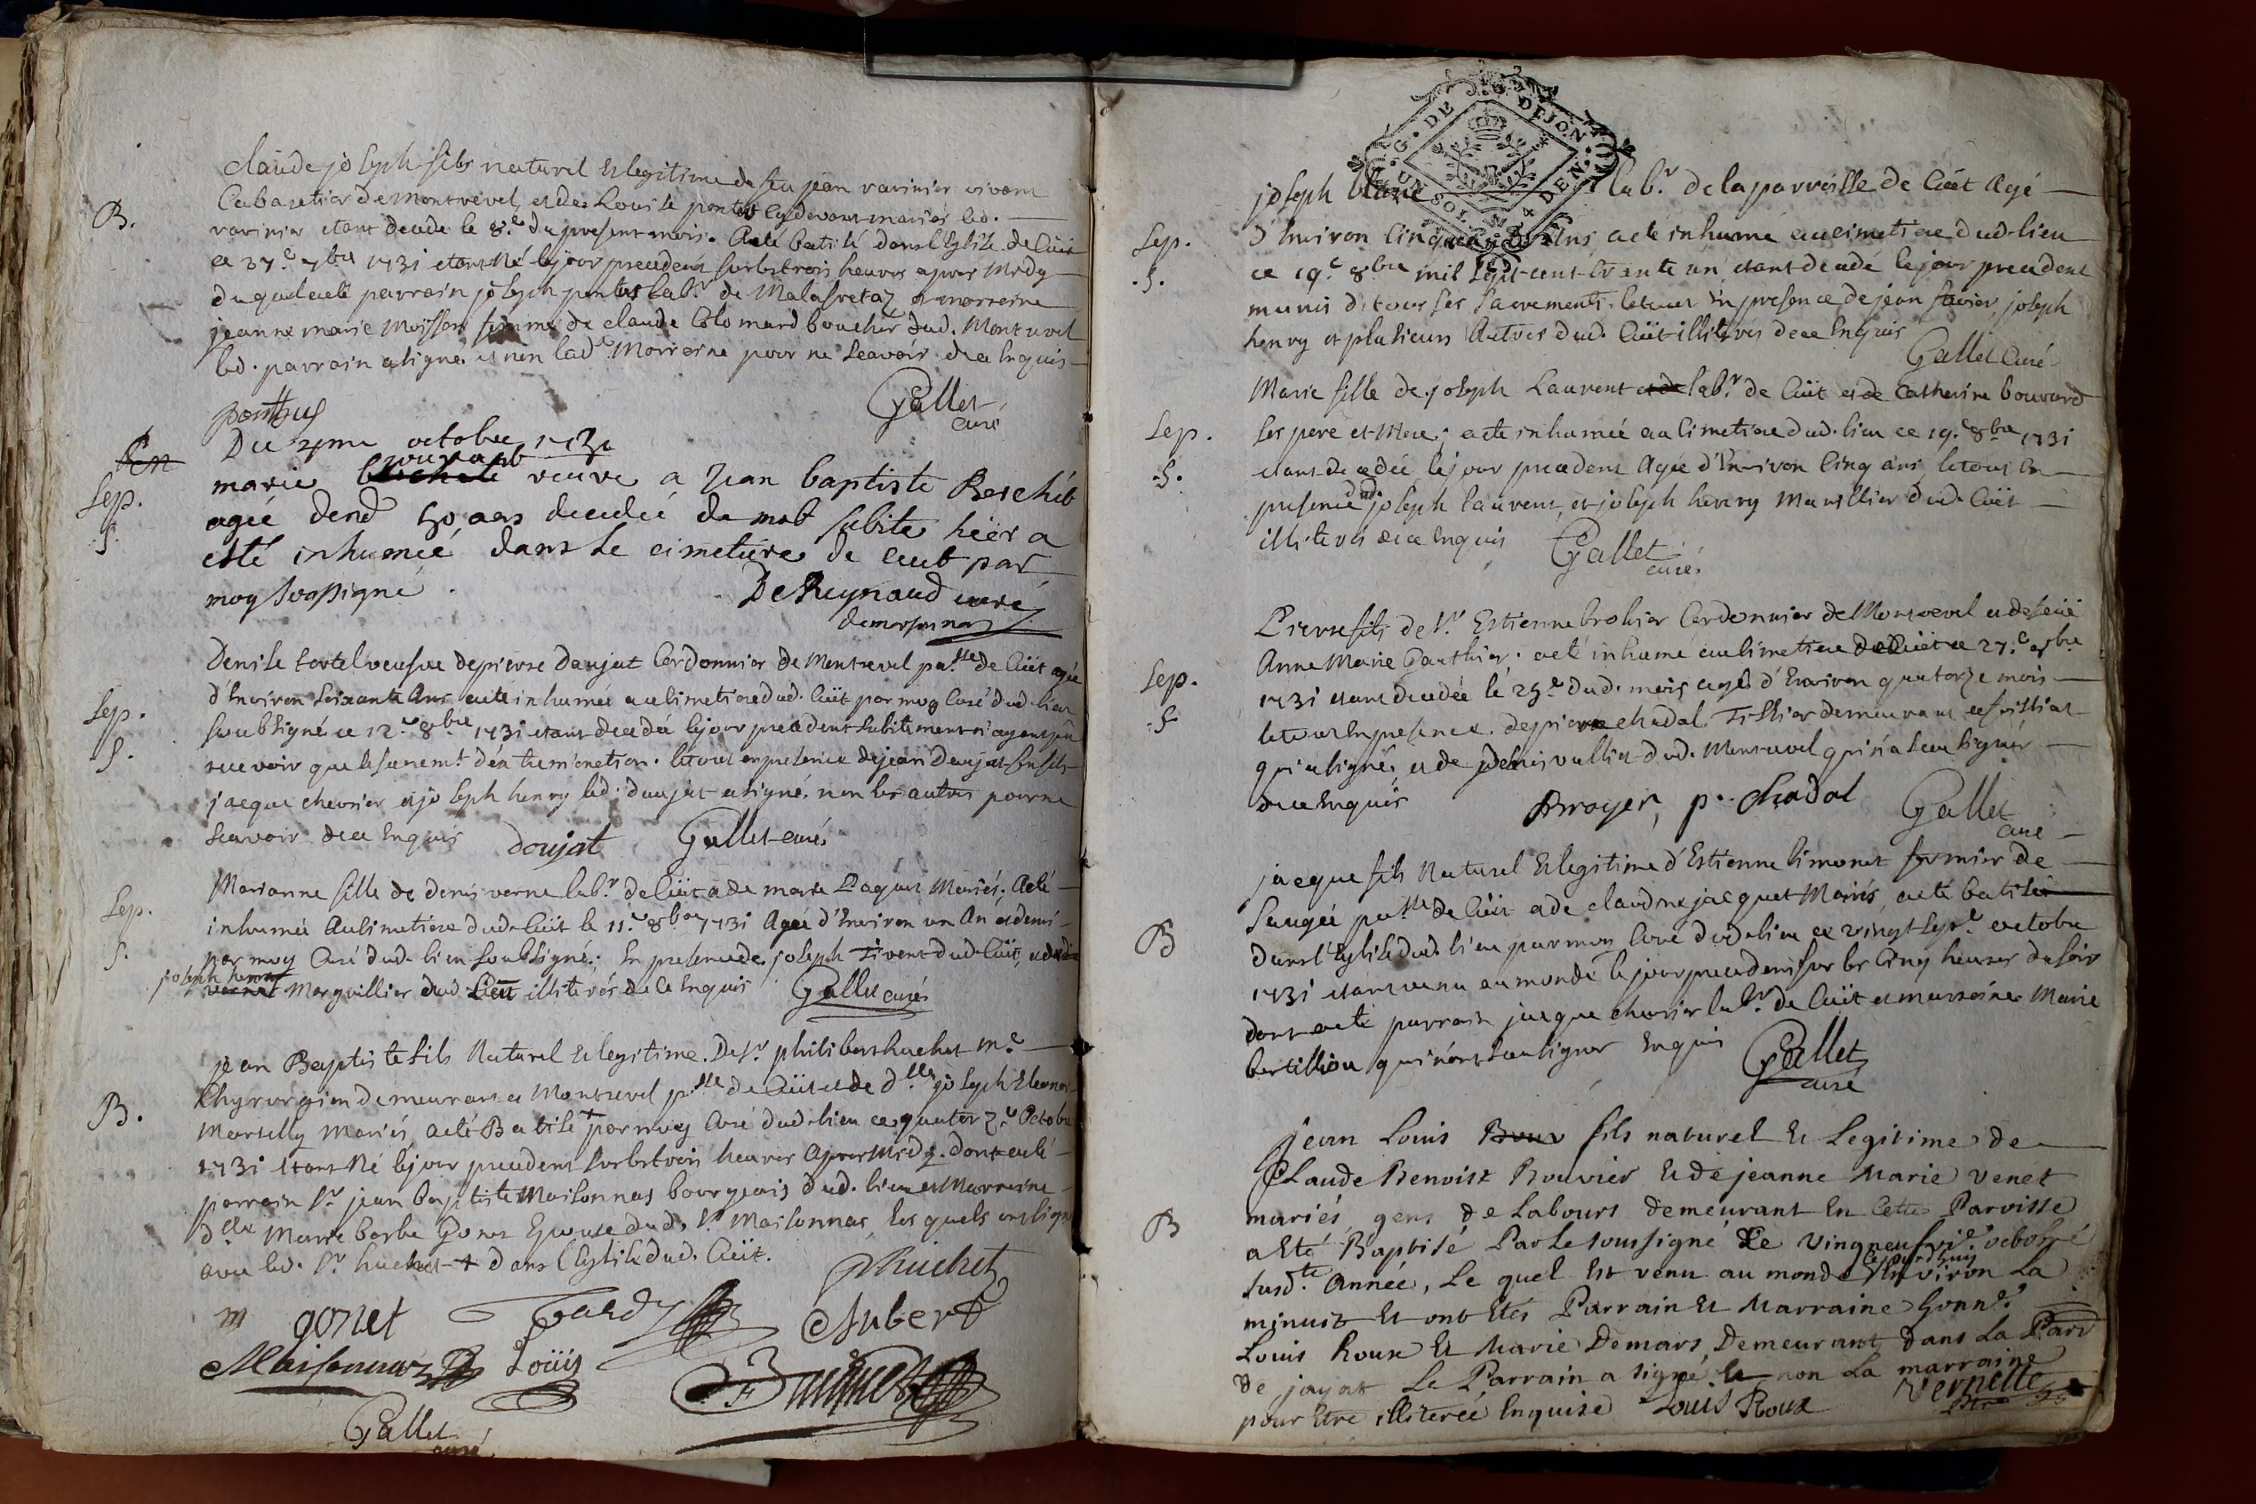 claude joseph fils naturel et legitime de feu jean varinier vivant
Cabaretier de montrevel, et de Louise ponthus cy devant mariés led.
B.
varinier etant decedé le 8.e du present mois. A eté batisé dans l'Eglise de Cüit
ce 27.e 7bre 1731 etant Né le jour precedent sur les trois heures apres Midy
duquel a eté parrain joseph ponthus lab.r de Malafretaz et marraine
jeanne marie Moisson femme de claude Colomard boucher dud. Montrevel
led. parrain a signé et non lad.e Marraine pour ne Scavoir de ce Enquis
ponthus
Gallet
curé
Du octobre 1731
Sep.
marie veuve a jean baptiste Reschéb
agée denv 50 ans decedée de mort subite hier a
esté inhumée dans le cimetiere de cuit par
moy Soussigné.
DeReynaud curé
de marsonnas
Denise tortel veufve de pierre Daujat Cordonnier de Montrevel pa.sse de Cüit agée
d'Environ Soixante Ans a eté inhumée au Cimetiere dud. Cüit par moy Curé dud. lieu
Sep.
soubsigné ce 12.e 8.bre 1731 etant decedée le jour precedent subitement n'ayant pû
f.
recevoir que le sacrem.t d'extremonction. le tout en presence de jean Daujat son fils
jacque chevrier et joseph henry led. daujat a signé. non les autres pour ne
scavoir de ce Enquis doujat Gallet curé
Marianne fille de denis verne lab.r de Cüit et de marie Paquet Mariés; A eté
Sep.
inhumée Au Cimetiere dud. Cüit le 11.e 8bre 1731 Agée d'Environ un An et demi
f.
par moy Curé dud. lieu Soubsigné; En presence de joseph Tivent dud. Cüit, et de
joseph henry
Marguillier dud. Cüit illiterés de ce Enquis Gallet curé
jean Baptiste fils Naturel et legitime de S.r philibert huchet m.e
Chyrurgien demeurant a Montrevel p.sse de Cüit et de d.lle joseph Eleonor
B.
Marselly Mariés, a eté Batisé + par moy Curé dud. lieu ce quatorz.e Octobre
1731 etant Né le jour precedent sur les trois heures Apres Midy. dont a eté
parrain S.r jean baptiste Maisonnas bourgeois dud. lieu et Marraine
d.lle Marie barbe Gonet Epouse dud. S.r Maisonnas, les quels ont signé
avec led. S.r huchet + dans l'Eglise dud. Cüit.
Phuchet
m gonet Tardy Aubert
Maisonnas Loüis
Gallet
curé
joseph blanc lab.r de la parroisse de Cüit Agé
UN SOL 4 DEN.
G. DE DEJON
Sep.
d'Environ Cinquante Ans a eté inhumé au cimetiere dud. lieu
f.
ce 19.e 8bre mil Sept cent trente un etant decedé le jour precedent
munis de tous ses Sacrements. le tout En presence de jean favier, joseph
henry et plusieurs Autres dud. Cüit illiterés de ce Enquis
Gallet Curé
Marie fille de joseph Laurent lab.r de Cüit et de Catherine bouvard
Sep.
ses pere et Mere; a eté inhumée au Cimetiere dud. lieu ce 19.e 8bre 1731
f.
etant decedée le jour precedent Agée d'Environ Cinq ans le tout En
presence dud. joseph laurent, et joseph henry Marillier dud. Cüit
illiterés de ce Enquis Gallet
curé
Pierre fils de S.r Estienne brohier Cordonnier de Montrevel et de feüe
Anne Marie Gauthier. a eté inhumé au Cimetiere de Cüit ce 27.e 8bre
Sep.
1731 etant decedé le 25.e dud. mois agé d'Environ quatorze mois
f.
le tout En presence de pierre chadal Tissier demeurant a
qui a signé, et de denis vulliet dud. Montrevel qui n'a sceu signer
de ce Enquis Broyer, p. Chadal Gallet
curé
jacque fils Naturel et legitime d'Estienne Simonet fermier de
Saugée pa.sse de Cüit et de claudine jacquet Mariés, a eté batisé
B
dans l'Eglise dud. lieu par moy Curé dud. lieu ce vingt Sept.e octobre
1731 etant venu au monde le jour precedent sur les Cinq heures du soir
dont a eté parrain jacque chevrier lab.r de Cüit et marraine Marie
bertillion qui n'ont sceu signer Enquis Gallet
curé
jean Louis fils naturel Et Legitime de
Claude Benoist Bouvier Et de jeanne Marie Venet
mariés, gens de Labours demeurant En Cette Paroisse
B
a Eté Baptisé Par Le soussigné Le Vingneufvi.e octobre
susd.te Année, Le quel Est venu au monde Environ La
minuit Et ont Etés Parrain Et Marraine honn.e
Louis Roux Et Marie Demars Demeurant dans La Parr
de jayat Le Parrain a signé Et non La marraine
pour Etre illiterée Enquise Louis Roux Vernette